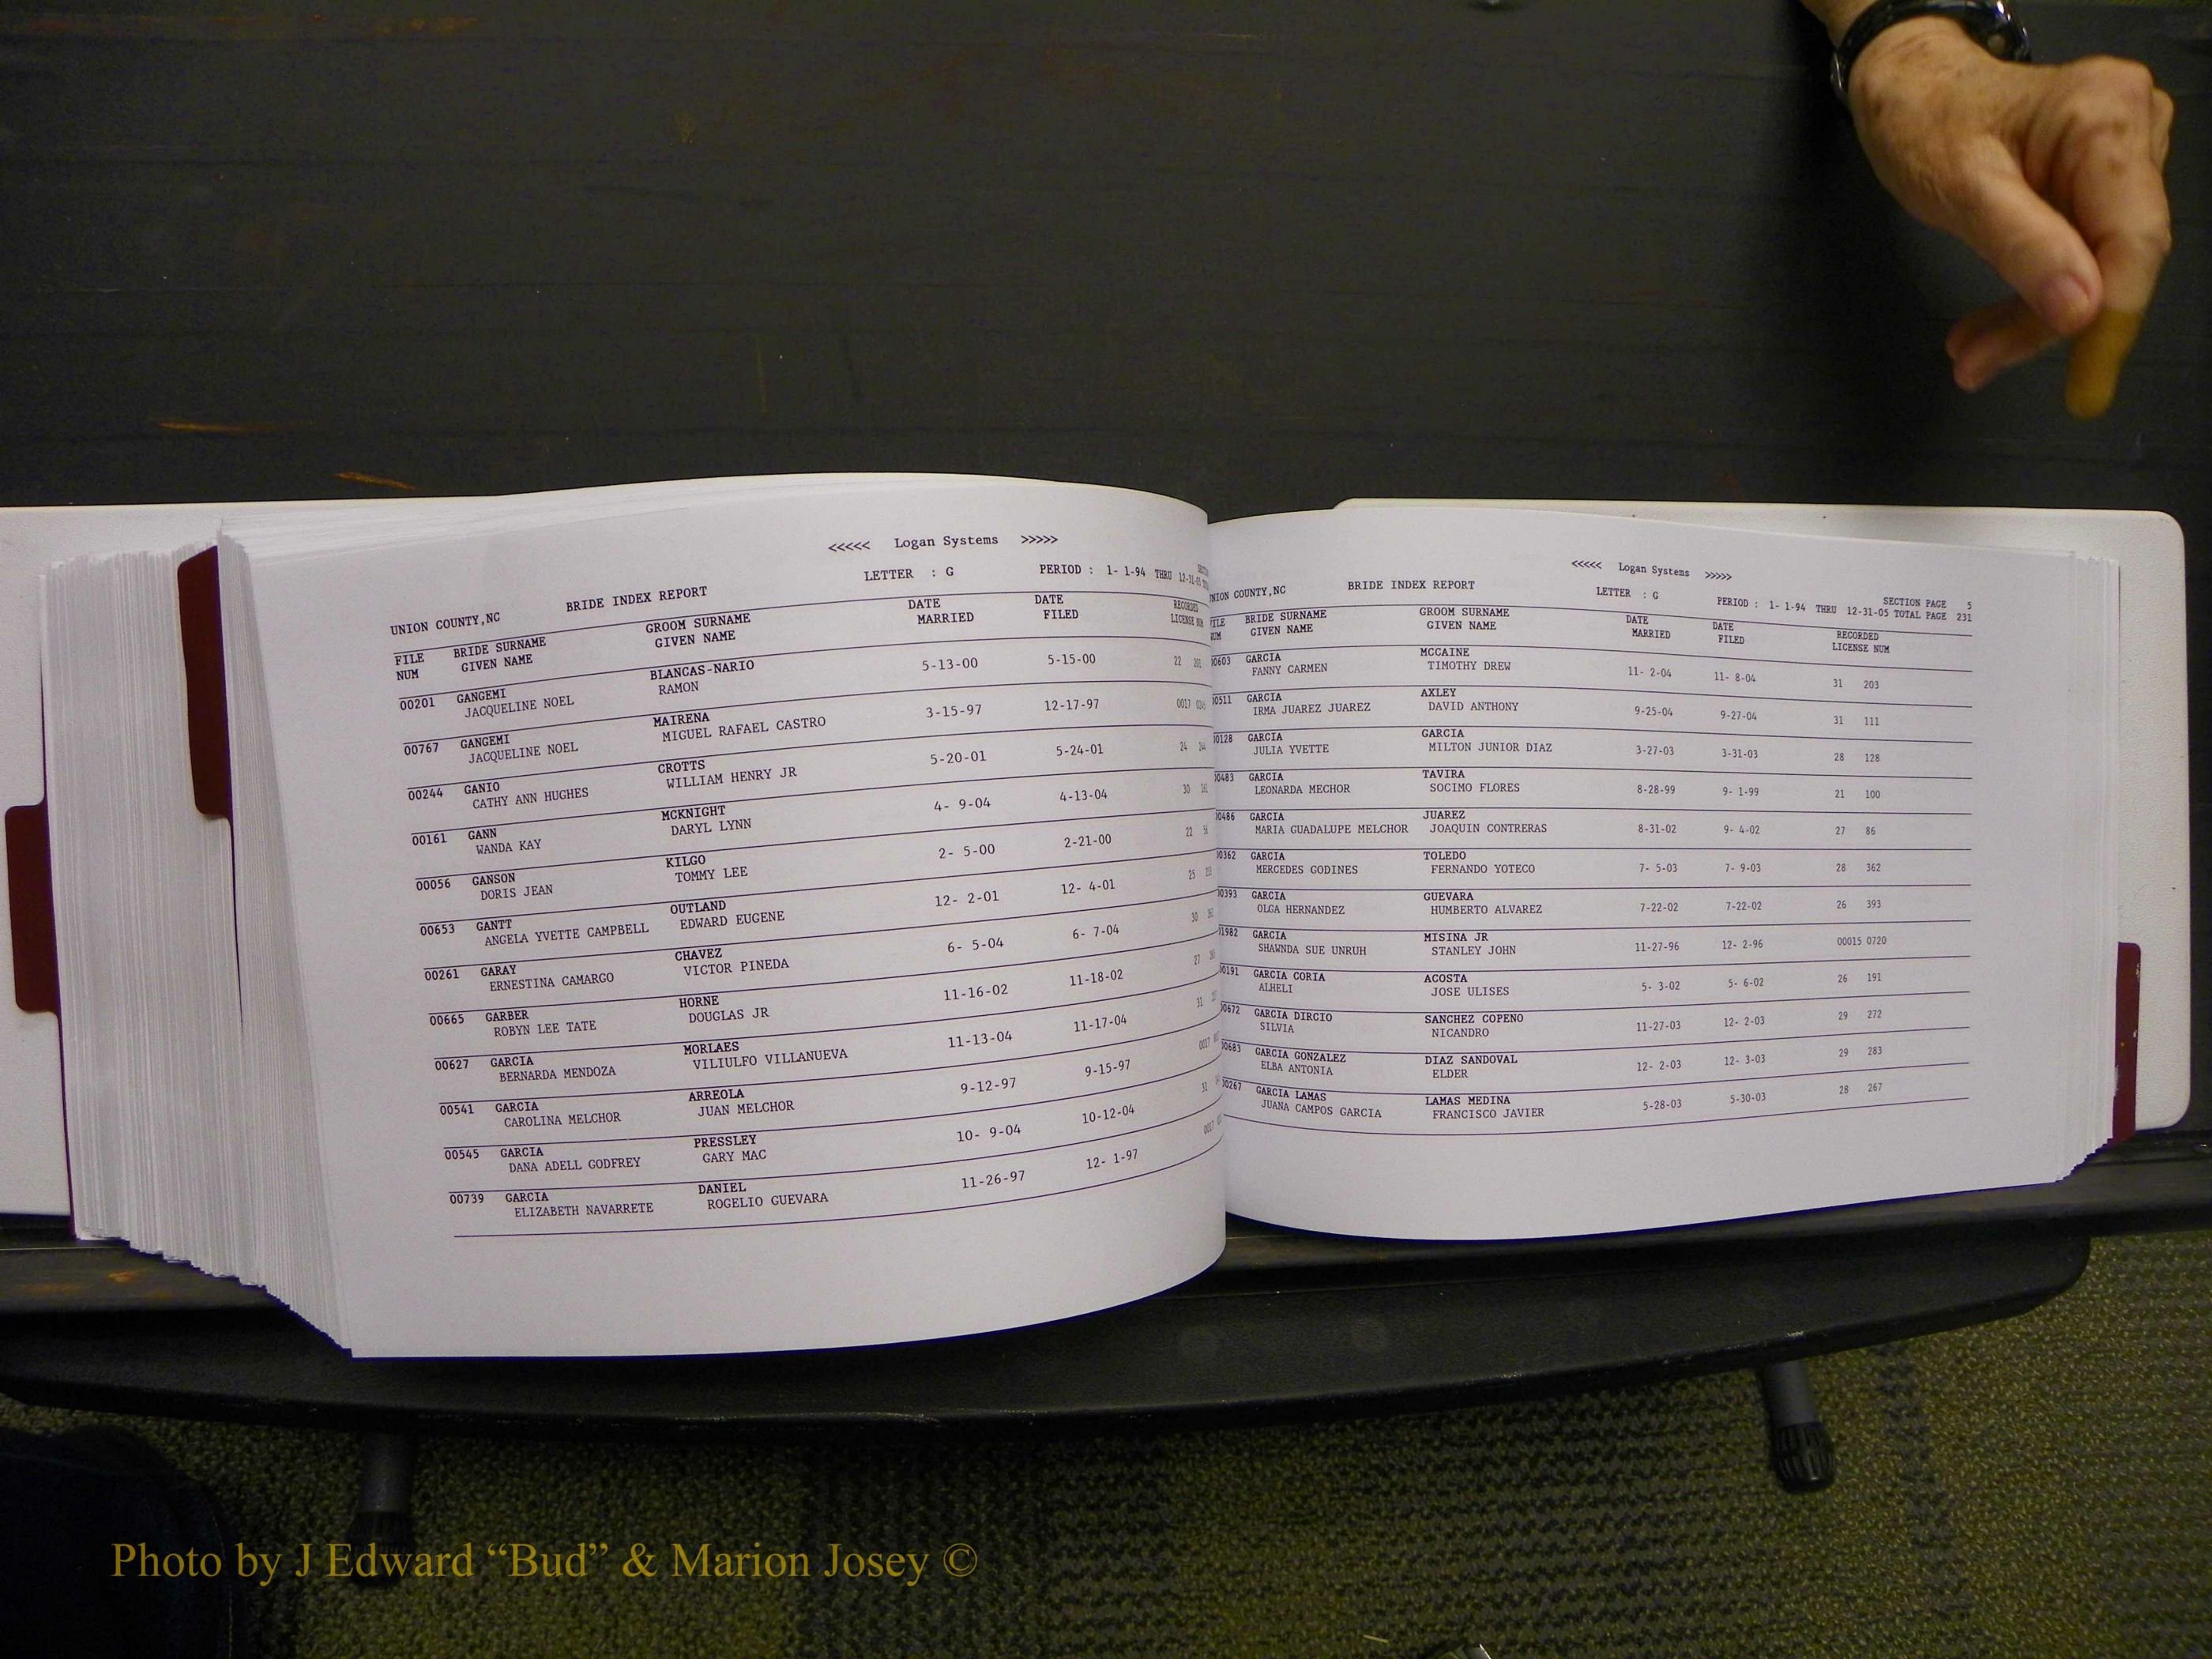 <<<<< Logan Systems >>>>>
LETTER : G PERIOD : 1- 1-94 THRU 12-31-05
UNION COUNTY,NC BRIDE INDEX REPORT
FILE BRIDE SURNAME GROOM SURNAME DATE DATE RECORDED
NUM GIVEN NAME GIVEN NAME MARRIED FILED LICENSE NUM
00201 GANGEMI BLANCAS-NARIO 5-13-00 5-15-00 22
JACQUELINE NOEL RAMON
00767 GANGEMI MAIRENA 3-15-97 12-17-97 0017
JACQUELINE NOEL MIGUEL RAFAEL CASTRO
00244 GANIO CROTTS 5-20-01 5-24-01 24
CATHY ANN HUGHES WILLIAM HENRY JR
00161 GANN MCKNIGHT 4- 9-04 4-13-04 30
WANDA KAY DARYL LYNN
00056 GANSON KILGO 2- 5-00 2-21-00 22
DORIS JEAN TOMMY LEE
00653 GANTT OUTLAND 12- 2-01 12- 4-01 25
ANGELA YVETTE CAMPBELL EDWARD EUGENE
00261 GARAY CHAVEZ 6- 5-04 6- 7-04 30
ERNESTINA CAMARGO VICTOR PINEDA
00665 GARBER HORNE 11-16-02 11-18-02 27
ROBYN LEE TATE DOUGLAS JR
00627 GARCIA MORLAES 11-13-04 11-17-04 31
BERNARDA MENDOZA VILIULFO VILLANUEVA
00541 GARCIA ARREOLA 9-12-97 9-15-97 0017
CAROLINA MELCHOR JUAN MELCHOR
00545 GARCIA PRESSLEY 10- 9-04 10-12-04 31
DANA ADELL GODFREY GARY MAC
00739 GARCIA DANIEL 11-26-97 12- 1-97 0017
ELIZABETH NAVARRETE ROGELIO GUEVARA
<<<<< Logan Systems >>>>>
LETTER : G SECTION PAGE 5
COUNTY,NC BRIDE INDEX REPORT PERIOD : 1- 1-94 THRU 12-31-05 TOTAL PAGE 231
BRIDE SURNAME GROOM SURNAME DATE DATE RECORDED
GIVEN NAME GIVEN NAME MARRIED FILED LICENSE NUM
0603 GARCIA MCCAINE 11- 2-04 11- 8-04 31 203
FANNY CARMEN TIMOTHY DREW
0511 GARCIA AXLEY 9-25-04 9-27-04 31 111
IRMA JUAREZ JUAREZ DAVID ANTHONY
0128 GARCIA GARCIA 3-27-03 3-31-03 28 128
JULIA YVETTE MILTON JUNIOR DIAZ
0483 GARCIA TAVIRA 8-28-99 9- 1-99 21 100
LEONARDA MECHOR SOCIMO FLORES
0486 GARCIA JUAREZ 8-31-02 9- 4-02 27 86
MARIA GUADALUPE MELCHOR JOAQUIN CONTRERAS
0362 GARCIA TOLEDO 7- 5-03 7- 9-03 28 362
MERCEDES GODINES FERNANDO YOTECO
0393 GARCIA GUEVARA 7-22-02 7-22-02 26 393
OLGA HERNANDEZ HUMBERTO ALVAREZ
1982 GARCIA MISINA JR 11-27-96 12- 2-96 00015 0720
SHAWNDA SUE UNRUH STANLEY JOHN
0191 GARCIA CORIA ACOSTA 5- 3-02 5- 6-02 26 191
ALHELI JOSE ULISES
0672 GARCIA DIRCIO SANCHEZ COPENO 11-27-03 12- 2-03 29 272
SILVIA NICANDRO
0683 GARCIA GONZALEZ DIAZ SANDOVAL 12- 2-03 12- 3-03 29 283
ELBA ANTONIA ELDER
0267 GARCIA LAMAS LAMAS MEDINA 5-28-03 5-30-03 28 267
JUANA CAMPOS GARCIA FRANCISCO JAVIER
Photo by J Edward “Bud” & Marion Josey ©